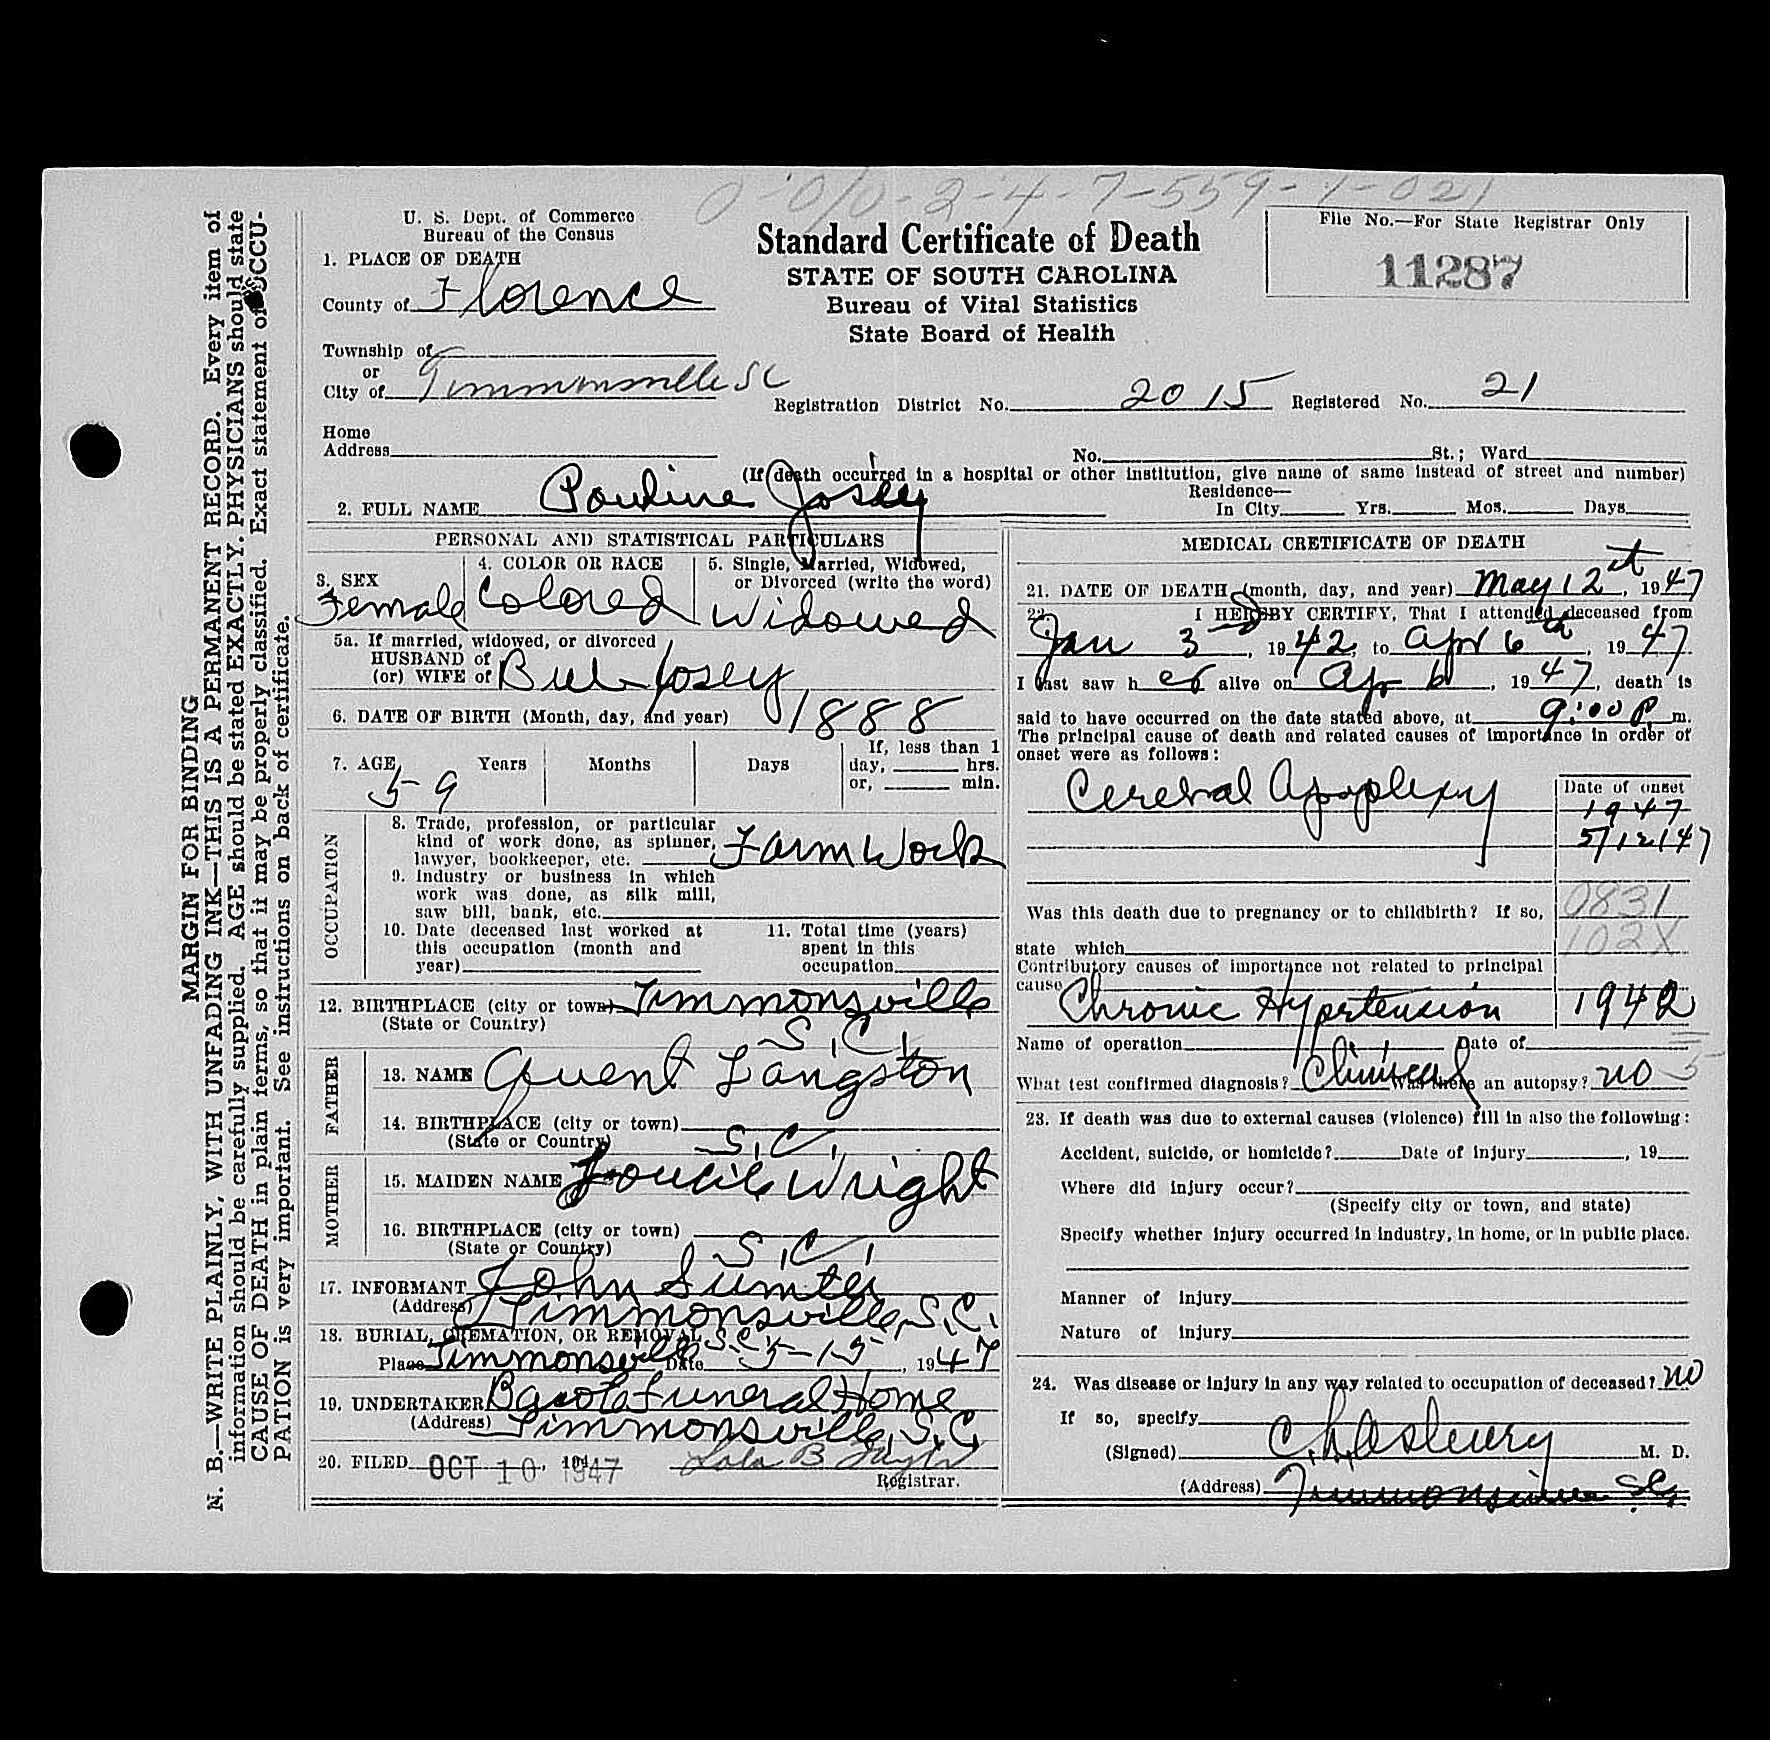 0-0/0-2-4-7-559-1-021
U. S. Dept. of Commerce
Bureau of the Census
Standard Certificate of Death
STATE OF SOUTH CAROLINA
Bureau of Vital Statistics
State Board of Health
File No.—For State Registrar Only
11287
1. PLACE OF DEATH
County of Florence
Township of
or
City of Timmonsville SC
Registration District No. 2015 Registered No. 21
Home
Address No. St.; Ward
(If death occurred in a hospital or other institution, give name of same instead of street and number)
2. FULL NAME Pauline Josey
Residence—
In City Yrs. Mos. Days
PERSONAL AND STATISTICAL PARTICULARS
3. SEX
Female
4. COLOR OR RACE
Colored
5. Single, Married, Widowed,
or Divorced (write the word)
Widowed
5a. If married, widowed, or divorced
HUSBAND of
(or) WIFE of Bill Josey
6. DATE OF BIRTH (Month, day, and year) 1888
7. AGE Years Months Days
59
If, less than 1
day, hrs.
or, min.
OCCUPATION
8. Trade, profession, or particular
kind of work done, as spinner,
lawyer, bookkeeper, etc. Farm Work
9. Industry or business in which
work was done, as silk mill,
saw bill, bank, etc.
10. Date deceased last worked at
this occupation (month and
year)
11. Total time (years)
spent in this
occupation
12. BIRTHPLACE (city or town) Timmonsville
(State or Country) S.C.
FATHER
13. NAME Quent Langston
14. BIRTHPLACE (city or town)
(State or Country) S.C.
MOTHER
15. MAIDEN NAME Wright
16. BIRTHPLACE (city or town)
(State or Country) S.C.
17. INFORMANT John Sumter
(Address) Timmonsville, S.C.
18. BURIAL, CREMATION, OR REMOVAL
Place Timmonsville S.C. Date 5-15, 1947
19. UNDERTAKER Bacote Funeral Home
(Address) Timmonsville, S.C.
20. FILED OCT 10, 1947 Lola B
Registrar.
MEDICAL CRETIFICATE OF DEATH
21. DATE OF DEATH (month, day, and year) May 12, 1947
22. I HEREBY CERTIFY, That I attended deceased from
Jan 3, 1942, to Apr 6th, 1947
I last saw her alive on Apr 6, 1947, death is
said to have occurred on the date stated above, at 9:00 P. m.
The principal cause of death and related causes of importance in order of
onset were as follows:
Cerebral Apoplexy
Date of onset
1947
5/12/47
Was this death due to pregnancy or to childbirth? If so, 0831
state which 102X
Contributory causes of importance not related to principal
cause
Chronic Hypertension 1942
Name of operation Date of
What test confirmed diagnosis? Clinical Was there an autopsy? no 5
23. If death was due to external causes (violence) fill in also the following:
Accident, suicide, or homicide? Date of injury , 19
Where did injury occur?
(Specify city or town, and state)
Specify whether injury occurred in industry, in home, or in public place.
Manner of injury
Nature of injury
24. Was disease or injury in any way related to occupation of deceased? no
If so, specify
(Signed) M. D.
(Address) Timmonsville SC
MARGIN FOR BINDING
N. B.—WRITE PLAINLY, WITH UNFADING INK—THIS IS A PERMANENT RECORD. Every item of
information should be carefully supplied. AGE should be stated EXACTLY. PHYSICIANS should state
CAUSE OF DEATH in plain terms, so that it may be properly classified. Exact statement of OCCU-
PATION is very important. See instructions on back of certificate.